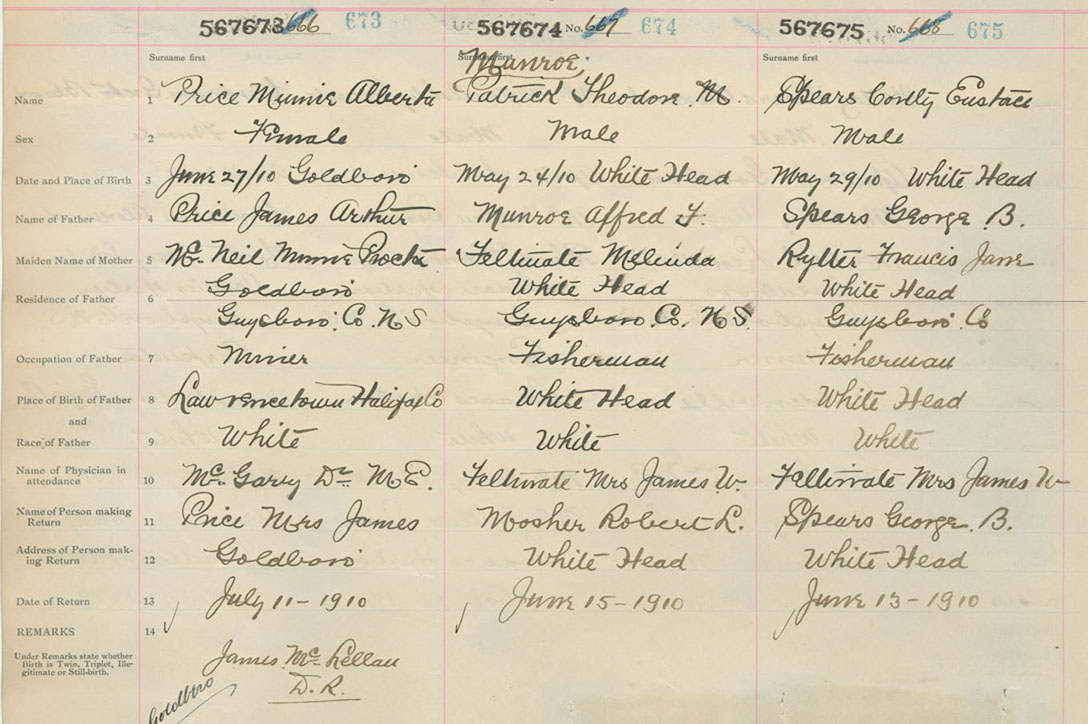 567673 666 673 567674 No. 667 674 567675 No. 668 675
Surname first Surname first Surname first
Munroe,
Name 1 Price Minnie Alberta Patrick Theodore M. Spears Eustace
Sex 2 Female Male Male
Date and Place of Birth 3 June 27/10 Goldboro May 24/10 White Head May 29/10 White Head
Name of Father 4 Price James Arthur Munroe Alfred F. Spears George B.
Maiden Name of Mother 5 Mc Neil Minnie Feltmate Melinda Francis Jane
Residence of Father 6 Goldboro White Head White Head
Guysboro. Co. N S Guysboro. Co. N S. Guysboro Co
Occupation of Father 7 Miner Fisherman Fisherman
Place of Birth of Father 8 Lawrencetown Halifax Co White Head White Head
and
Race of Father 9 White White White
Name of Physician in
attendance 10 Mc. Gary Dr M E. Feltmate Mrs James W. Feltmate Mrs James W
Name of Person making
Return 11 Price Mrs James Mosher Robert L. Spears George. B.
Address of Person mak-
ing Return 12 Goldboro White Head White Head
Date of Return 13 July 11-1910 June 15-1910 June 13-1910
REMARKS 14
Under Remarks state whether
Birth is Twin, Triplet, Ille-
gitimate or Still-birth.
James Mc. Lellan
D. R.
Goldboro